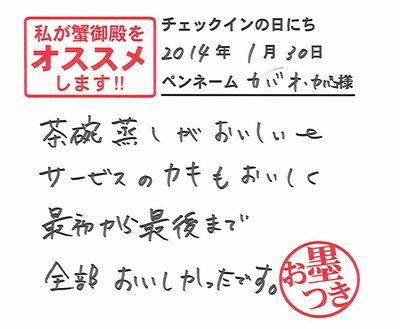 私が蟹御殿を
オススメ
します!!
チェックインの日にち
2014年 1月 30日
ペンネーム 様
茶碗蒸しがおいしいと
サービスのカキもおいしく
最初から最後まで
全部 おいしかったです。
お墨つき